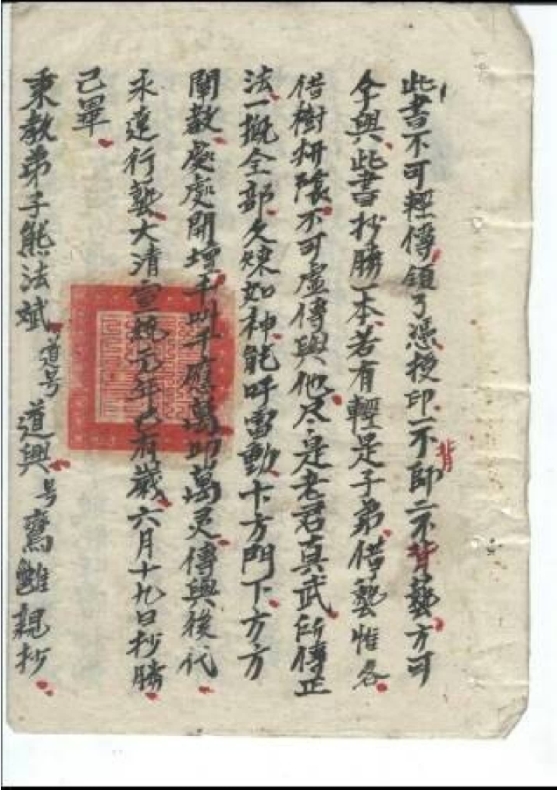 此書不可輕傳領了憑授印一不師二不背藝方可
今與此書抄勝一本若有輕是子弟借藝惟名
借樹栟䕃不可虛傳與他尽是老君真武所傳正
法一概全部久煉如神能呼雷動卡方門下方方
開教處處開壇千叫千應萬叩萬灵傳與後代
永遠行藝大清宣統元年己酉歲六月十九日抄勝
己畢
秉教弟子熊法斌道号道興号鸞雝親抄